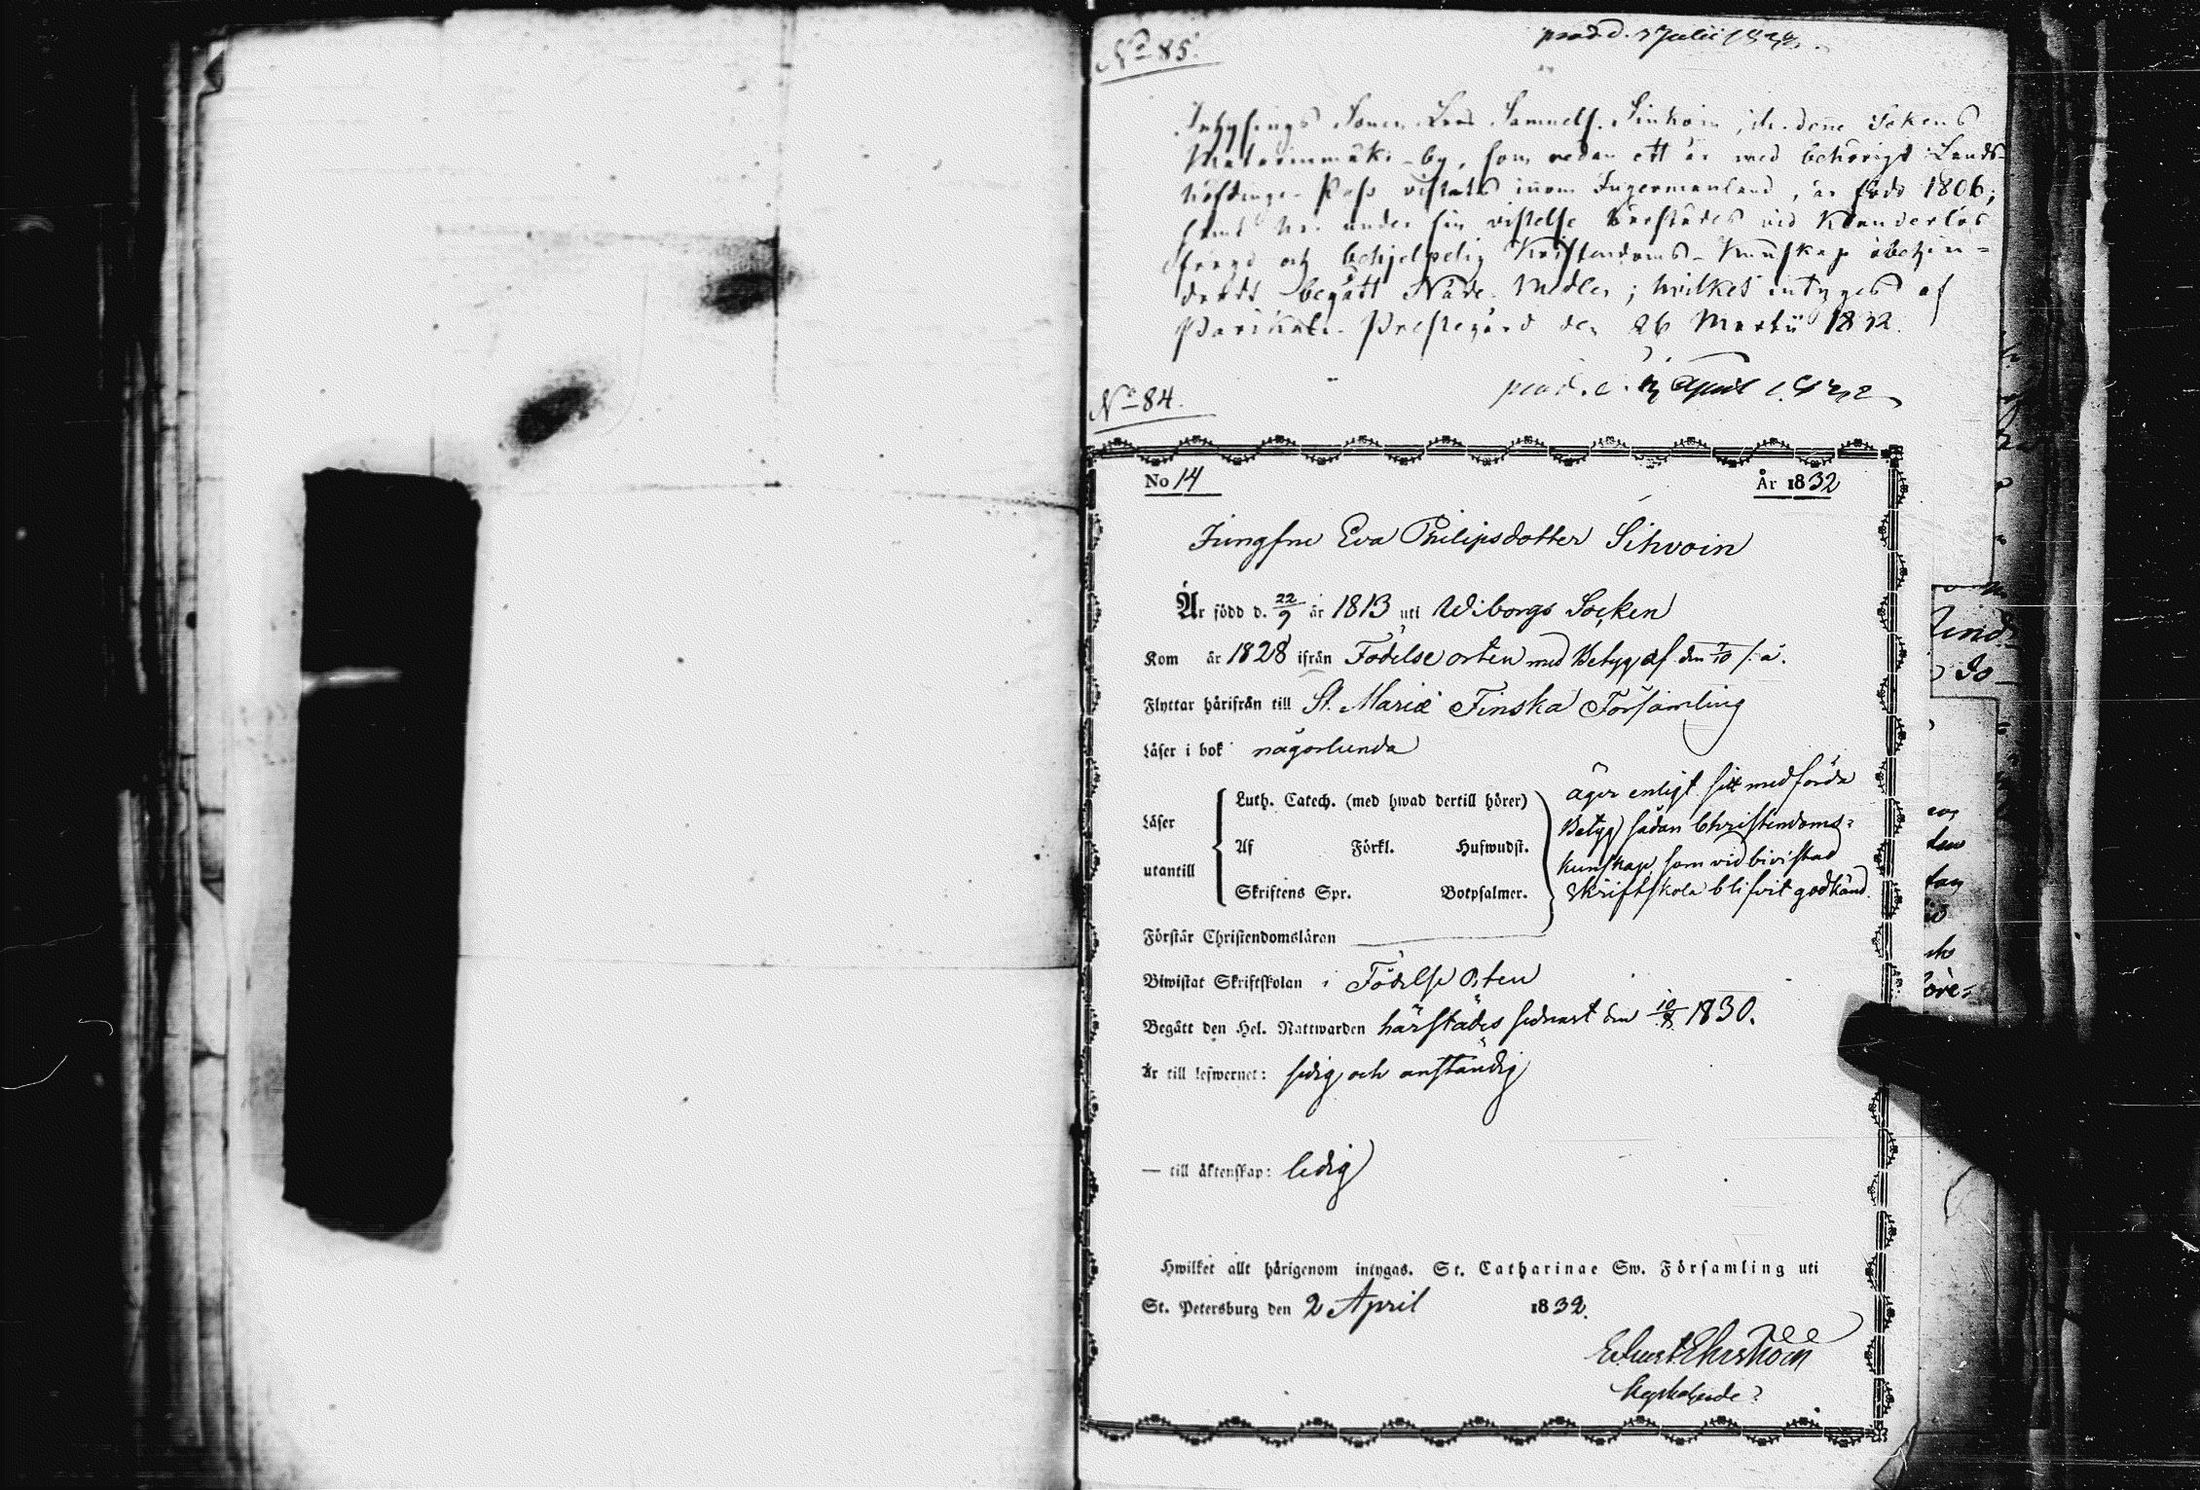 No 85.
prod. d. 7 Julii 1832.
Inhysings Sonen Lars Samuelss. Sinkoin, ifr. denne Sokens
by, som redan ett år med behörigt Lands-
höfdinge-Pass vistats inom Ingermanland, är född 1806;
samt har under sin vistelse härstädes vid klanderlös
frejd och behjelpelig Kristendoms-kunskap obehin-
dradt begått Nåde-Medlen; hvilket intygas af
Parikala Prestegård den 26 Martii 1832.
No 84.
prod. d. April 1832
No 14 År 1832
Jungfru Eva Philipsdotter Sihvoin
Är född d. 22/9 år 1813 uti Wiborgs Socken
Kom år 1828 ifrån Födelseorten med Betyg af den 7/10 s. å.
Flyttar härifrån till St. Mariæ Finska Församling
Läser i bok någorlunda
Luth. Catech. (med hwad dertill hörer)
Läser
Af Förkl. Hufwudst.
utantill
Skriftens Spr. Botpsalmer.
äger enligt sitt medförda
Betyg sådan Christendoms-
kunskap, som vid bivistad
Skriftskola blifvit godkänd.
Förstår Christendomsläran
Biwistat Skriftskolan i Födelse Orten
Begått den Hel. Nattwarden härstädes sednast den 1830.
Är till lefwernet: sedig och anständig
— till äktenskap: ledig
Hwilket allt härigenom intygas. St. Catharinae Sw. Församling uti
St. Petersburg den 2 April 1832.
Ehrström
Kyrkoherde